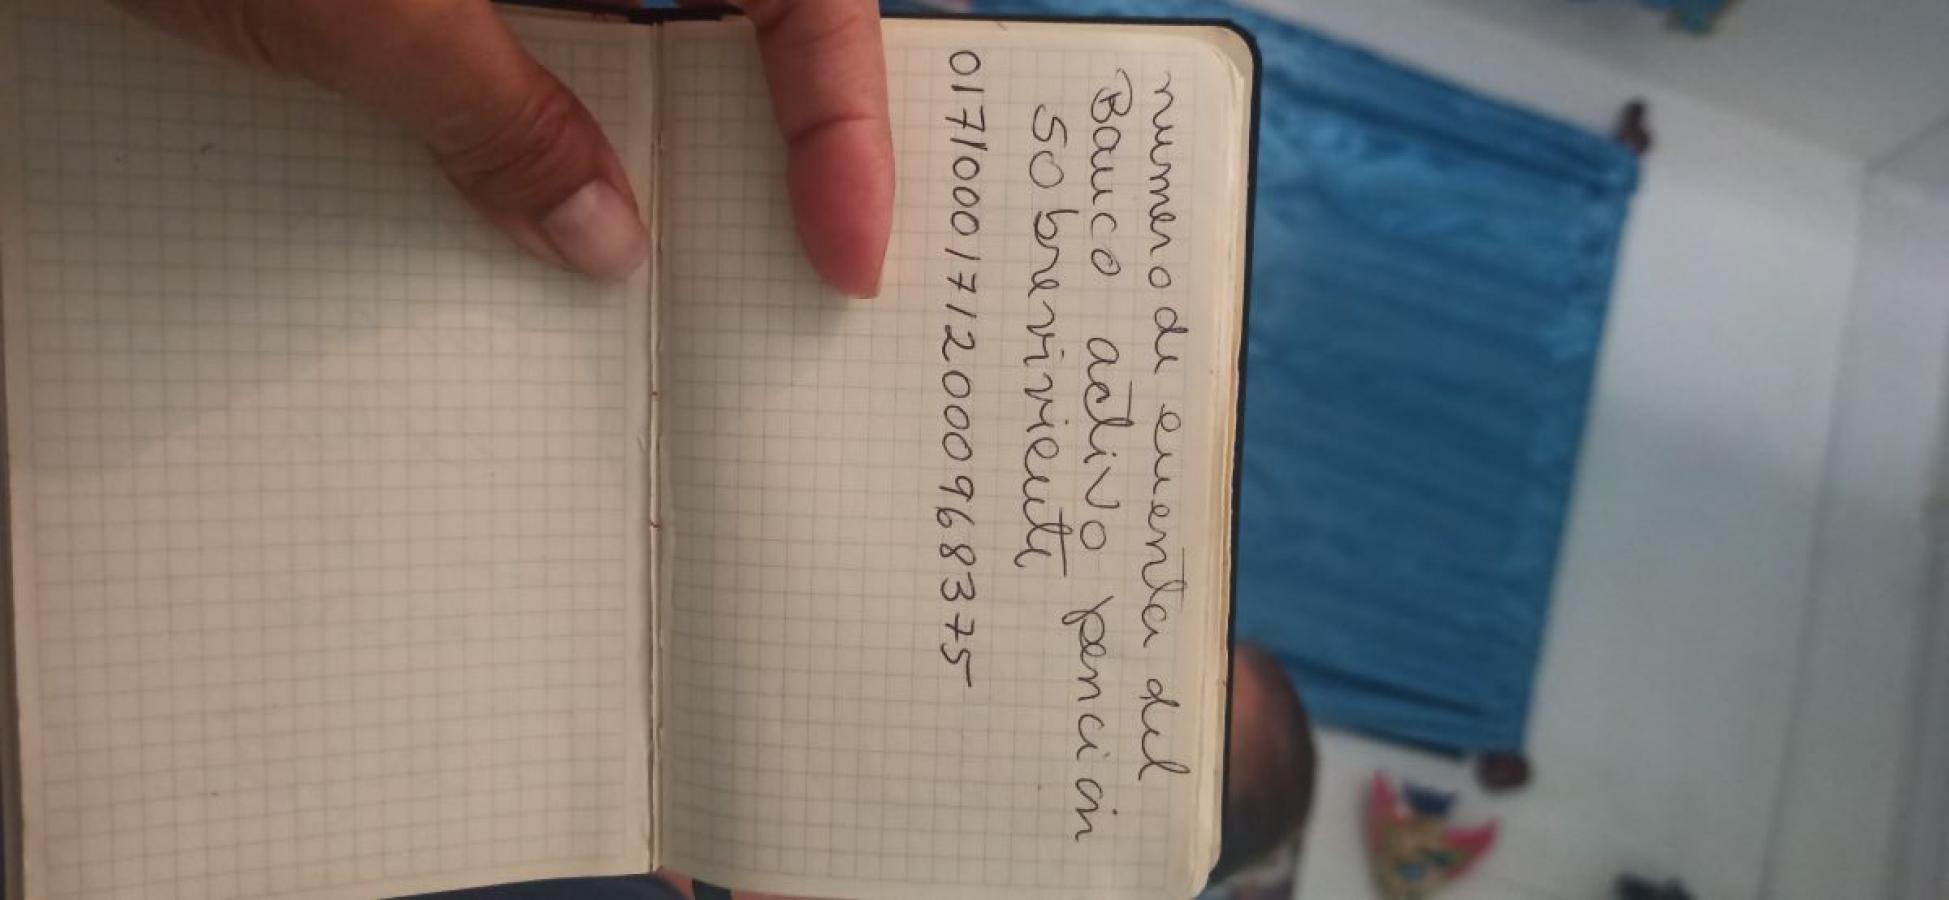 numero de cuenta del
Banco activo pencion
sobreviviente
01710001712000968375